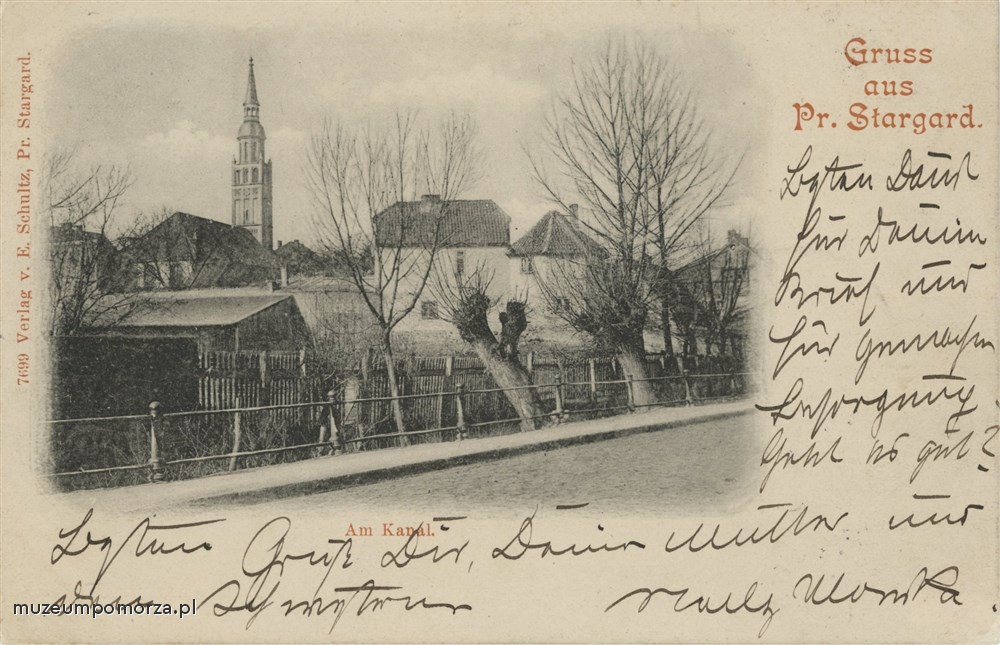 Gruss
aus
Pr. Stargard.
7699 Verlag v. E. Schultz, Pr. Stargard.
Besten Dank
für Deinen
Brief und
für
Besorgung.
Geht es gut?
Am Kanal.
Besten Gruß Dir, Deiner Mutter und
den Schwestern
muzeumpomorza.pl